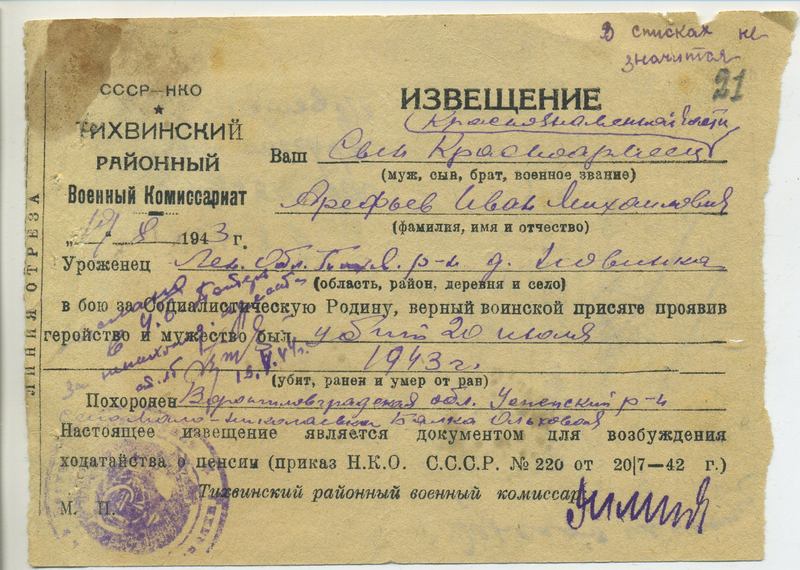 В списках не
значится
21
СССР—НКО
ТИХВИНСКИЙ
РАЙОННЫЙ
Военный Комиссариат
8 1943 г.
ИЗВЕЩЕНИЕ
Краснознаменной части
Ваш Сын Красноармеец
(муж, сын, брат, военное звание)
Арефьев Иван Михайлович
(фамилия, имя и отчество)
Уроженец Лен. Обл. р-н д. Новинка
(область, район, деревня и село)
в бою за Социалистическую Родину, верный воинской присяге проявив
геройство и мужество был убит 20 июля
1943 г.
(убит, ранен и умер от ран)
Похоронен Ворошиловградская обл. Успенский р-н
Мало-Николаевка Балка Ольховая
Настоящее извещение является документом для возбуждения
ходатайства о пенсии (приказ Н.К.О. С.С.С.Р. № 220 от 20|7—42 г.)
Тихвинский районный военный комиссар
М. П.
ЛИНИЯ ОТРЕЗА